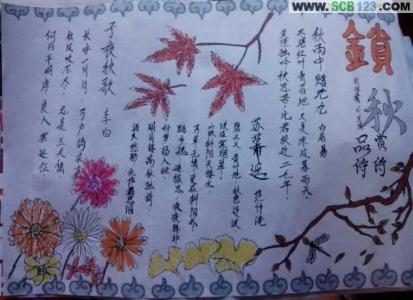 www.SCB123.com
鎖
秋
赏诗
品诗
秋雨中赠元九 白居易
不堪红叶青苔地,又是凉风暮雨天。
莫怪独吟秋思苦,比君校近二毛年。
苏幕遮 范仲淹
碧云天,黄叶地,秋色连波
波上寒烟翠。
山映斜阳天接水
芳草无情,更在斜阳外。
黯乡魂,追旅思,夜夜除非
好梦留人睡。
明月楼高休独倚,
酒入愁肠,化作相思泪
子夜秋歌 李白
长安一片月,万户捣衣声
秋风吹不尽,总是玉关情
何日平胡虏,良人罢远征